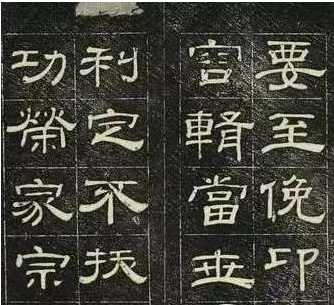 要至俛卬
當世
利定不
功榮家宗